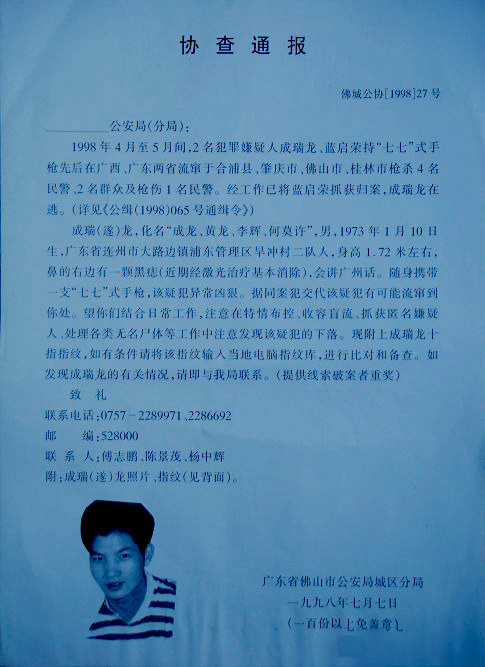 协查通报
佛城公协[1998]27号
________公安局(分局):
1998年4月至5月间,2名犯罪嫌疑人成瑞龙、蓝启荣持“七七”式手
枪先后在广西、广东两省流窜于合浦县、肇庆市、佛山市、桂林市枪杀4名
民警、2名群众及枪伤1名民警。经工作已将蓝启荣抓获归案,成瑞龙在
逃。(详见《公缉(1998)065号通缉令》)
成瑞(遂)龙,化名“成龙、黄龙、李辉、何莫许”,男,1973年1月10日
生,广东省连州市大路边镇浦东管理区旱冲村二队人,身高1.72米左右,
鼻的右边有一颗黑痣(近期经激光治疗基本消除),会讲广州话。随身携带
一支“七七”式手枪,该疑犯异常凶狠。据同案犯交代该疑犯有可能流窜到
你处。望你们结合日常工作,注意在特情布控、收容盲流、抓获匿名嫌疑
人、处理各类无名尸体等工作中注意发现该疑犯的下落。现附上成瑞龙十
指指纹,如有条件请将该指纹输入当地电脑指纹库,进行比对和备查。如
发现成瑞龙的有关情况,请即与我局联系。(提供线索破案者重奖)
致 礼
联系电话:0757-2289971、2286692
邮 编:528000
联 系 人:傅志鹏、陈景茂、杨中辉
附:成瑞(遂)龙照片、指纹(见背面)。
广东省佛山市公安局城区分局
一九九八年七月七日
(一百份以上免盖章)